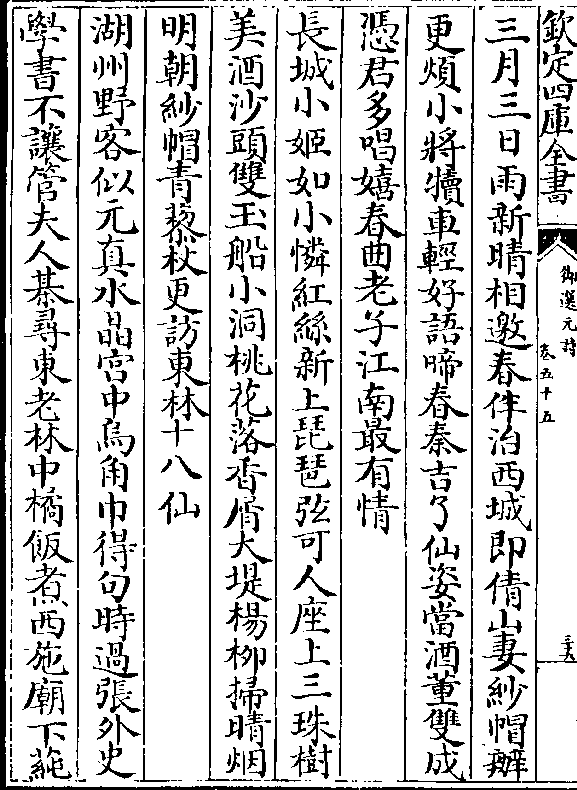 欽定四庫全書
御選元詩
卷五十五
三六
三月三日雨新晴相邀春伴洽西城即倩山妻紗帽辦
更煩小將犢車輕好語啼春秦吉了仙姿當酒董雙成
憑君多唱嬉春曲老子江南最有情
長城小姬如小憐紅絲新上琵琶弦可人座上三珠樹
美酒沙頭雙玉船小洞桃花落香屑大堤楊柳掃晴烟
明朝紗帽青藜杖更訪東林十八仙
湖州野客似元真水晶宫中烏角巾得句時過張外史
學書不讓管夫人棊尋東老林中橘飯煮西施廟下蒓